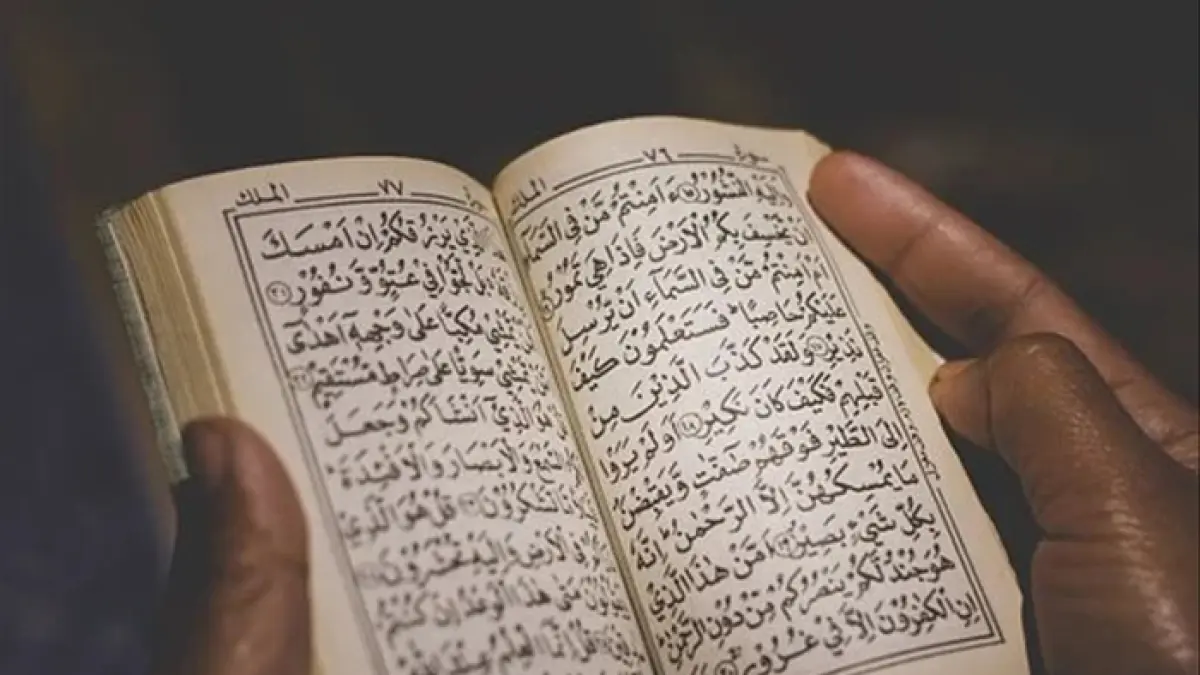 سورة ٧٦ الملك
اِلَيْهِ النُّشُوْرُ ١٥ ءَاَمِنْتُمْ مَّنْ فِي السَّمَآءِ
اَنْ يَّخْسِفَ بِكُمُ الْاَرْضَ فَاِذَا هِيَ تَمُوْرُ
اَمْ اَمِنْتُمْ مَّنْ فِي السَّمَآءِ اَنْ يُّرْسِلَ
عَلَيْكُمْ حَاصِبًا ط فَسَتَعْلَمُوْنَ كَيْفَ
نَذِيْرِ ١٧ وَلَقَدْ كَذَّبَ الَّذِيْنَ مِنْ
قَبْلِهِمْ فَكَيْفَ كَانَ نَكِيْرِ ١٨ اَوَلَمْ يَرَوْا
اِلَى الطَّيْرِ فَوْقَهُمْ صٰٓفّٰتٍ وَّيَقْبِضْنَ
مَا يُمْسِكُهُنَّ اِلَّا الرَّحْمٰنُ ط اِنَّهٗ
بِكُلِّ شَيْءٍ بَصِيْرٌ ١٩ اَمَّنْ هٰذَا الَّذِيْ
هُوَ جُنْدٌ لَّكُمْ يَنْصُرُكُمْ مِّنْ دُوْنِ الرَّحْمٰنِ
اِنِ الْكٰفِرُوْنَ اِلَّا فِيْ غُرُوْرٍ ٢٠
٧٧ الملك
يَرْزُقُكُمْ اِنْ اَمْسَكَ
بَلْ لَّجُّوْا فِيْ عُتُوٍّ وَّنُفُوْرٍ ٢١
يَّمْشِيْ مُكِبًّا عَلٰى وَجْهِهٖٓ اَهْدٰىٓ
يَّمْشِيْ سَوِيًّا عَلٰى صِرَاطٍ مُّسْتَقِيْمٍ ٢٢
هُوَ الَّذِيْٓ اَنْشَاَكُمْ وَجَعَلَ
السَّمْعَ وَالْاَبْصَارَ وَالْاَفْـِٕدَةَ ط
مَّا تَشْكُرُوْنَ ٢٣ قُلْ هُوَ الَّذِيْ
فِي الْاَرْضِ وَاِلَيْهِ تُحْشَرُوْنَ ٢٤
مَتٰى هٰذَا الْوَعْدُ اِنْ كُنْتُمْ
قُلْ اِنَّمَا الْعِلْمُ